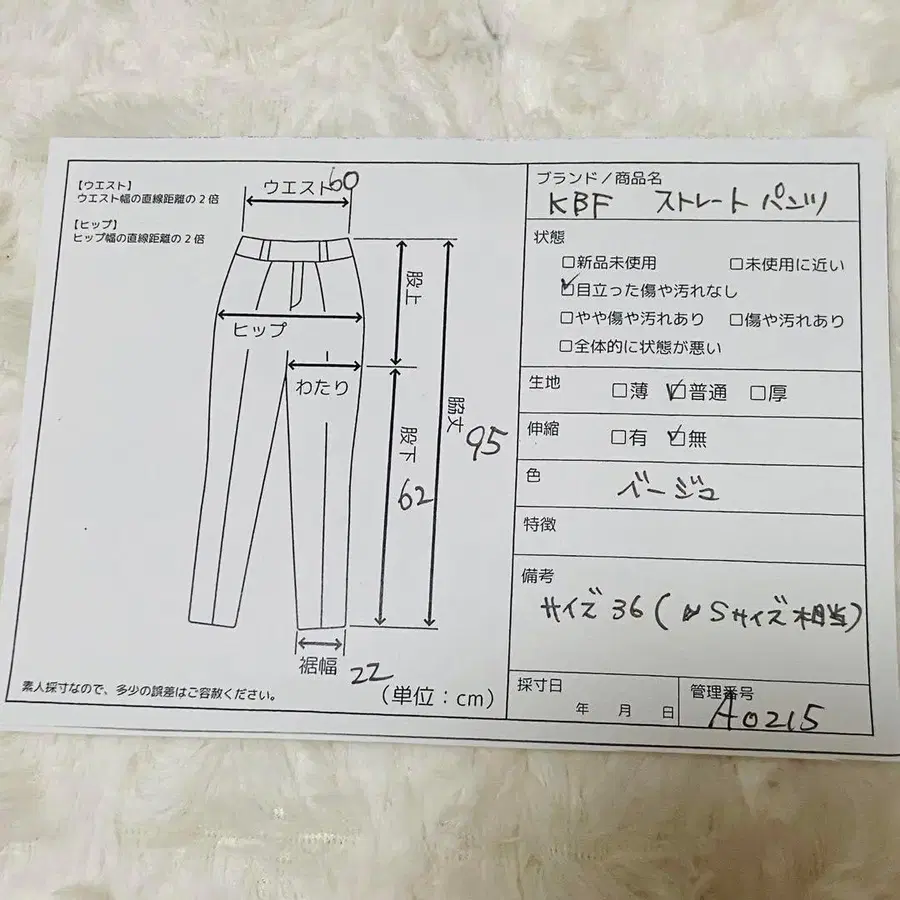 【ウエスト】
ウエスト幅の直線距離の2倍
【ヒップ】
ヒップ幅の直線距離の2倍
ウエスト 60
ヒップ
股上
わたり
股下
62
脇丈
95
裾幅 22
(単位:cm)
素人採寸なので、多少の誤差はご容赦ください。
ブランド/商品名
KBF ストレートパンツ
状態
□新品未使用 □未使用に近い
☑目立った傷や汚れなし
□やや傷や汚れあり □傷や汚れあり
□全体的に状態が悪い
生地 □薄 ☑普通 □厚
伸縮 □有 ☑無
色
ベージュ
特徴
備考
サイズ36(Sサイズ相当)
採寸日
年 月 日
管理番号
A0215